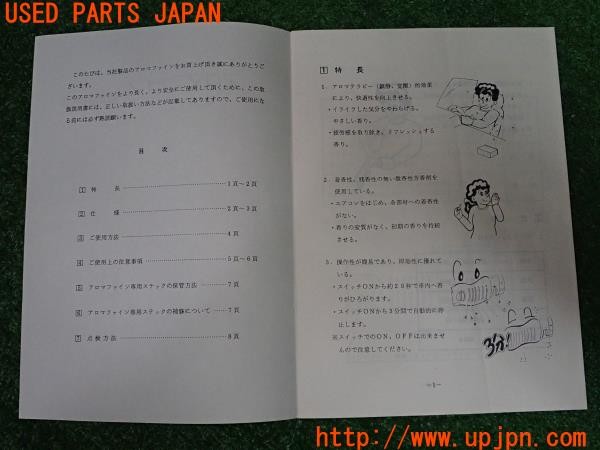 USED PARTS JAPAN
このたびは、当社製品のアロマファインをお買上げ頂き誠にありがとうございます。
このアロマファインをより長く、より安全にご使用して頂くために、この取扱説明書には、正しい取扱い方法などが記載してありますので、ご使用になる前には必ず熟読願います。
目 次
1 特 長 1頁~2頁
2 仕 様 2頁~3頁
3 ご使用方法 4頁
4 ご使用上の注意事項 5頁~6頁
5 アロマファイン専用スティックの保管方法 7頁
6 アロマファイン専用スティックの補修について 7頁
7 点検方法 8頁
1 特 長
1. アロマテラピー(鎮静、覚醒)的効果
により、快適性を向上させる。
・イライラした気分をやわらげる、
やさしい香り。
・疲労感を取り除き、リフレッシュする
香り。
2. 着香性、残香性の無い散香性芳香剤を
使用している。
・エアコンをはじめ、各部材への着香性
がない。
・香りの変質がなく、初期の香りを持続
させる。
3. 操作性が簡易であり、即効性に優れて
いる。
・スイッチONから約20秒で車内へ香
りがひろがります。
・スイッチONから3分間で自動的に停
止します。
※スイッチでのON、OFFは出来ませ
んので注意してください。
3分!
-1-
http://www.upjpn.com/